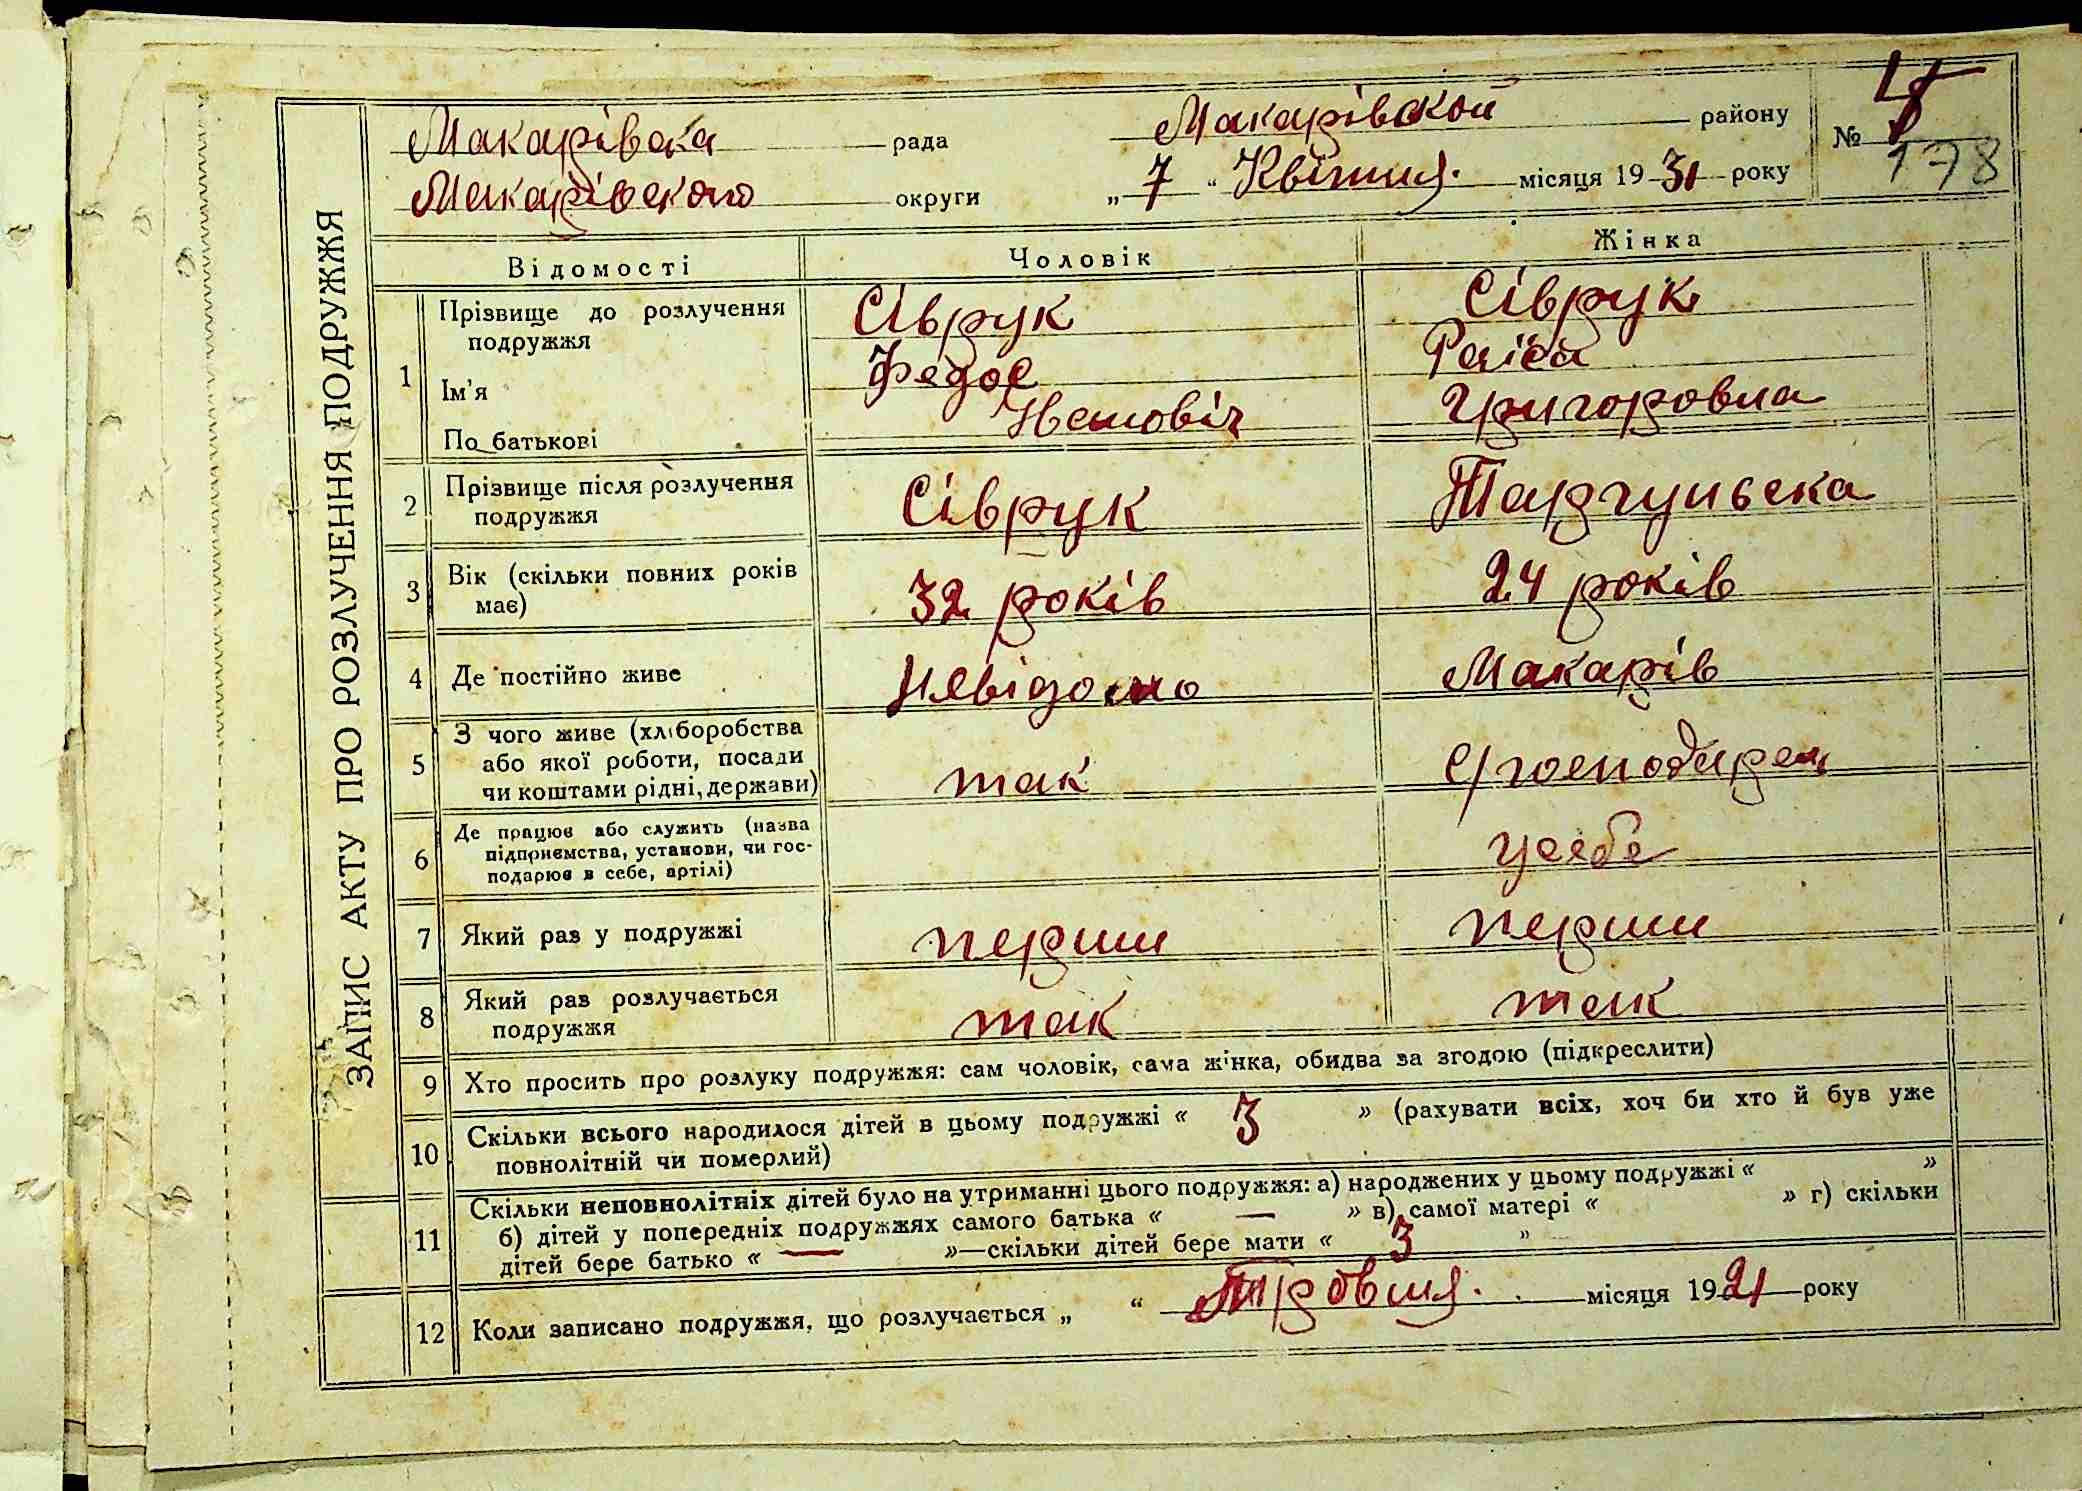 ЗАПИС АКТУ ПРО РОЗЛУЧЕННЯ ПОДРУЖЖЯ
Макарівска рада Макарівской району № 4
Макарівского округи „ 7 “ Квітня. місяця 1931 року 178
Відомості Чоловік Жінка
1 Прізвище до розлучення подружжя Сіврук Сіврук
Ім'я Федос Раіса
По батькові Івановіч Григоровна
2 Прізвище після розлучення подружжя Сіврук
3 Вік (скільки повних років має) 32 років 24 років
4 Де постійно живе Невідомо Макарів
5 З чого живе (хліборобства
або якої роботи, посади
чи коштами рідні, держави) так
6 Де працює або служить (назва
підприємства, установи, чи гос-
подарює в себе, артілі) усебе
7 Який раз у подружжі перши перши
8 Який раз розлучається подружжя так так
9 Хто просить про розлуку подружжя: сам чоловік, сама жінка, обидва за згодою (підкреслити)
10 Скільки всього народилося дітей в цьому подружжі « 3 » (рахувати всіх, хоч би хто й був уже
повнолітній чи померлий)
11 Скільки неповнолітніх дітей було на утриманні цього подружжя: а) народжених у цьому подружжі « »
б) дітей у попередніх подружжях самого батька « — » в) самої матері « » г) скільки
дітей бере батько « — »—скільки дітей бере мати « 3 »
12 Коли записано подружжя, що розлучається „ “ місяця 1921 року